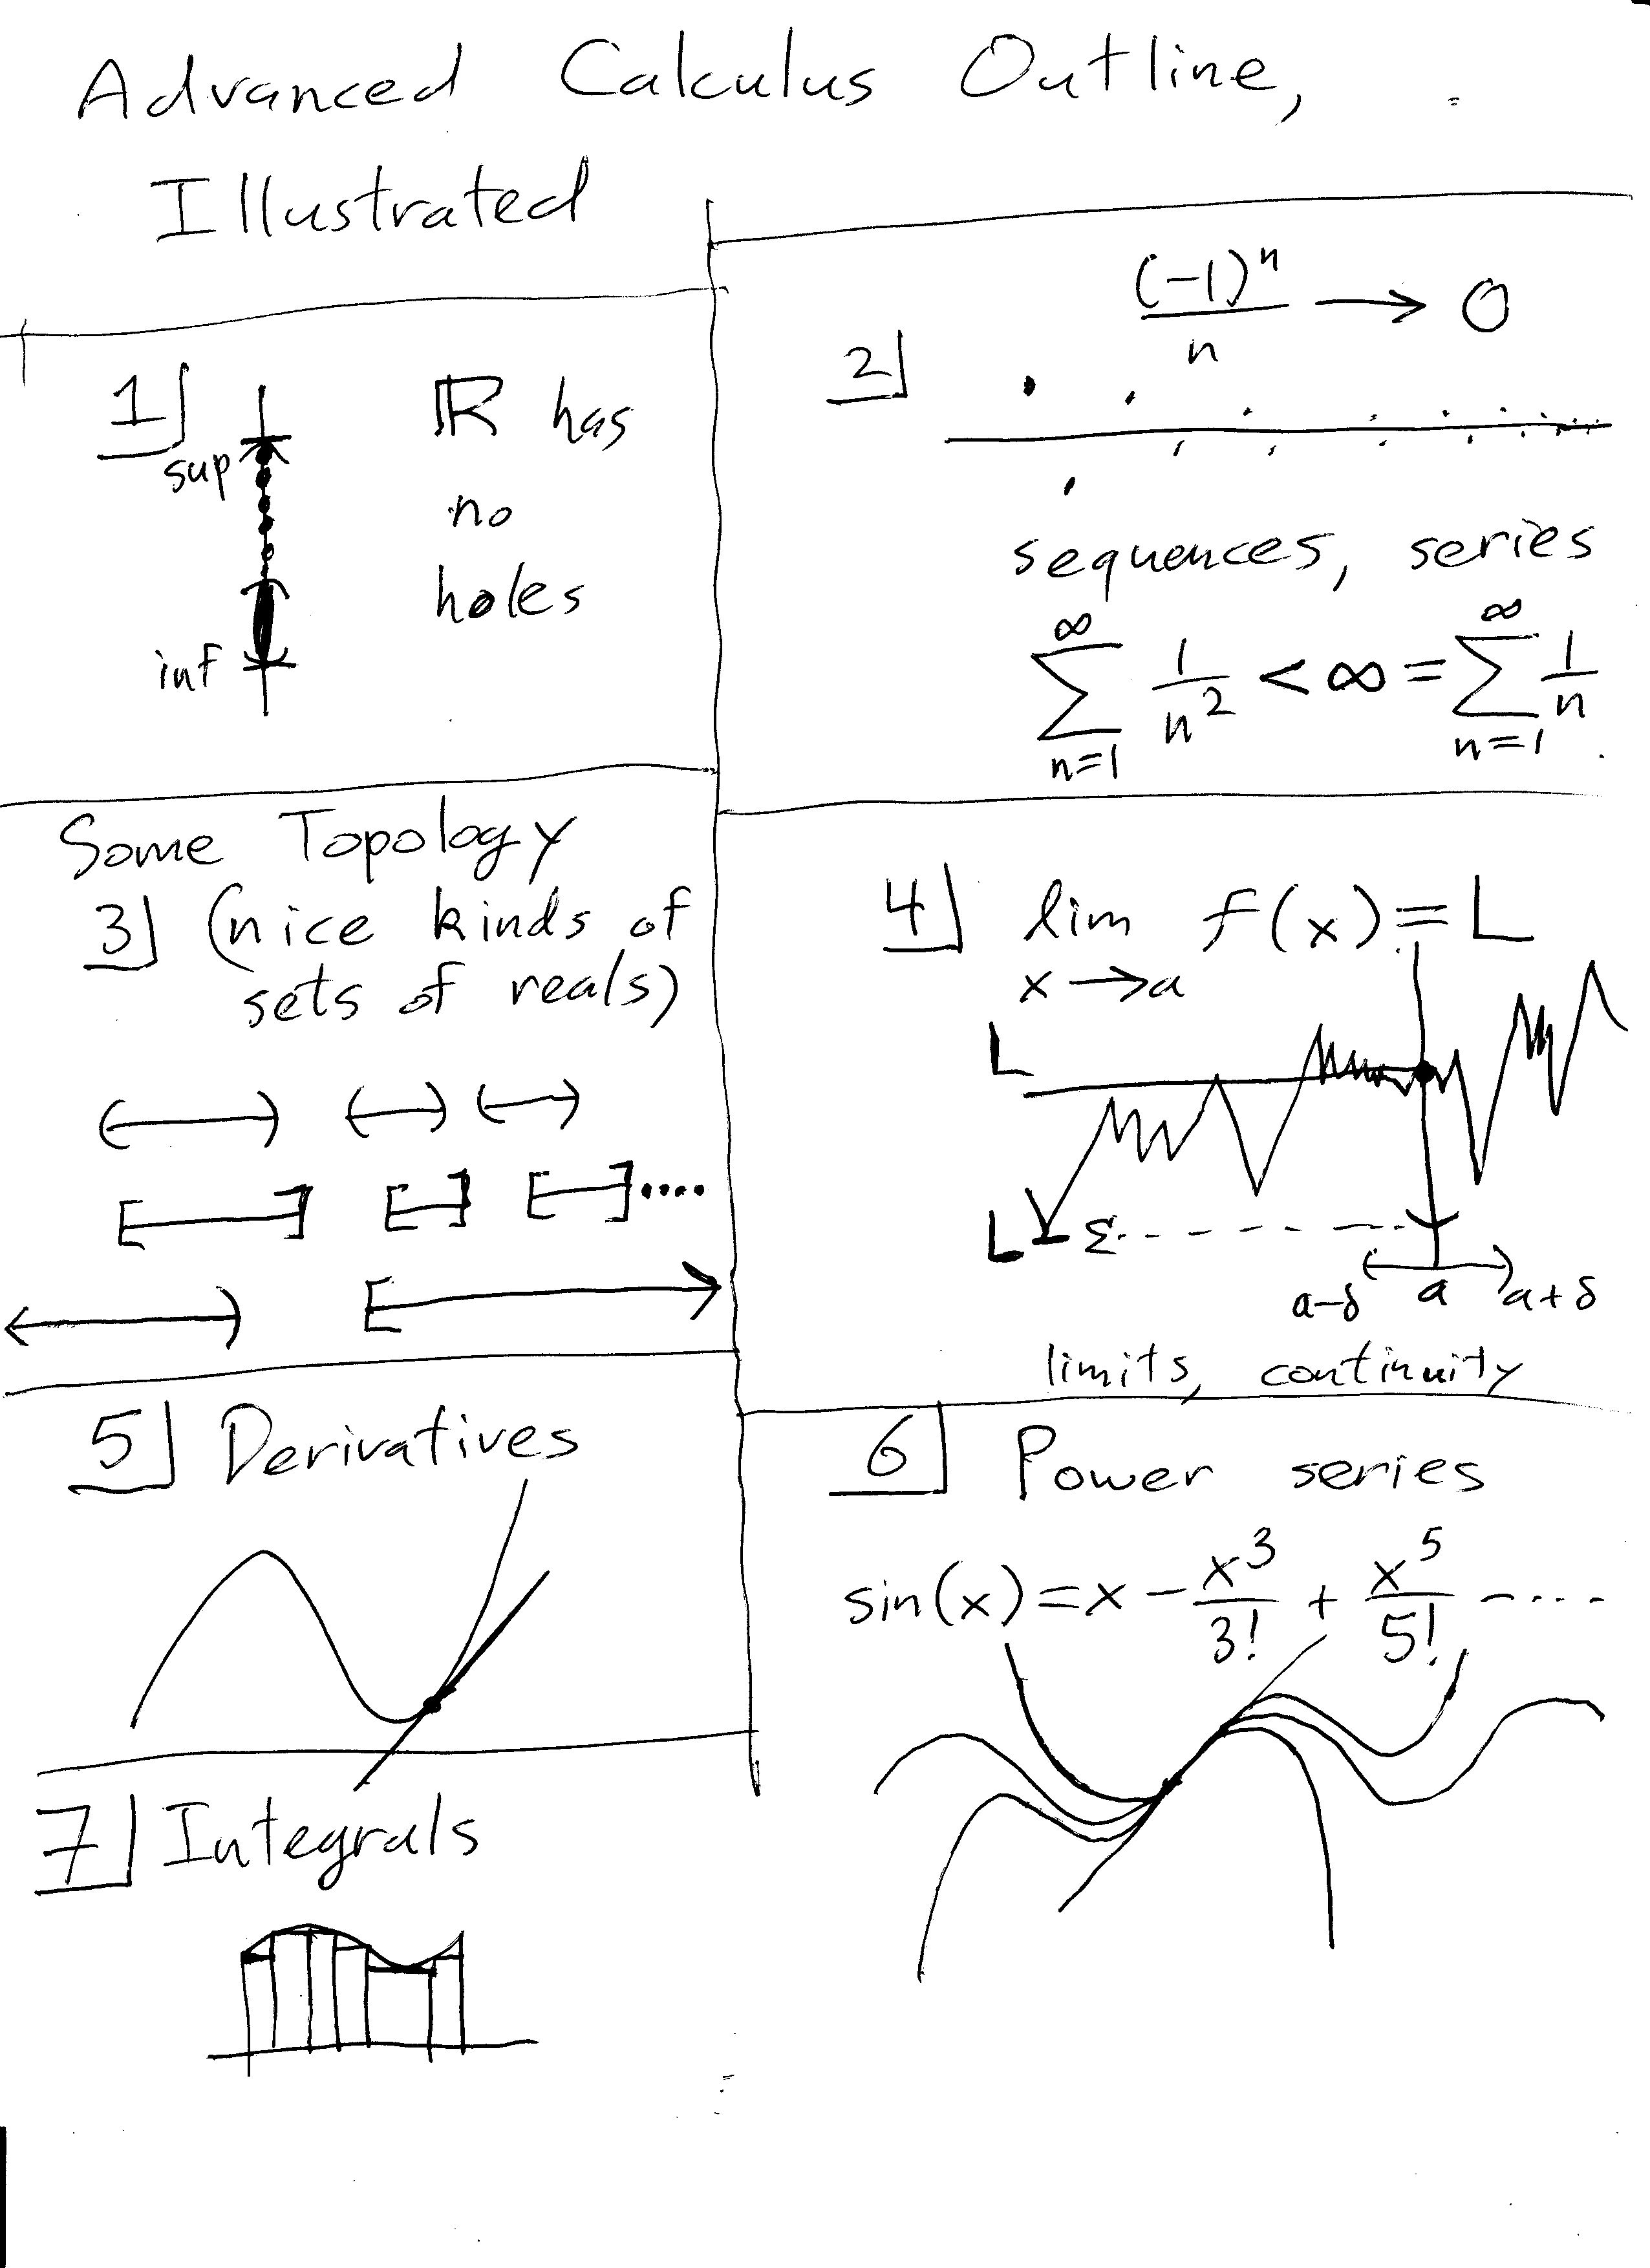 Advanced Calculus Outline,
Illustrated
1
sup
inf
ℝ has
no
holes
2
(-1)ⁿ/n → 0
sequences, series
∞ ∑ n=1 1/n² < ∞ = ∞ ∑ n=1 1/n
Some Topology
3 (nice kinds of
sets of reals)
4 lim f(x) = L
x→a
L
L - Σ
a-δ a a+δ
limits, continuity
5 Derivatives
6 Power series
sin(x) = x - x³/3! + x⁵/5! - ...
7 Integrals